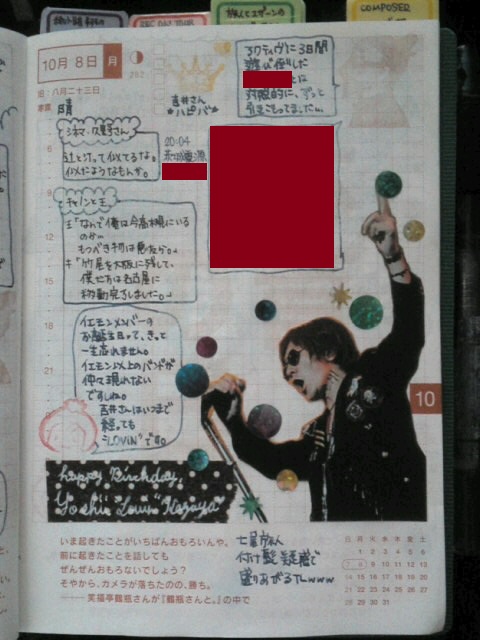 COMPOSER
10月 8日 月
282
旧：八月二十三日
晴
吉井さん
ハピバ
アクティヴに3日間
とは
対照的に、ずっと
引きこもってました。
シネマ・久野さん
辻と汁って似てるな。
似たようなもんか。
20:04
6
9
12
15
18
21
チャノンと王
王「なんで俺は今高槻にいる
のか…
もつべき物は友だち。」
キ「竹尾を大阪に残して、
僕たちは名古屋に
移動完了しました。」
イエモンメンバーの
お誕生日って、きっと
一生忘れません。
イエモン以上のバンドが
仲々現れない
ですしね。
吉井さんはいつまで
経っても
"LOVIN"です。
10
happy Birthday,
Yoshii Lovin "Kazuya"
いま起きたことがいちばんおもろいんや。
前に起きたことを話しても
ぜんぜんおもろないでしょう？
そやから、カメラが落ちたのの、勝ち。
——笑福亭鶴瓶さんが『鶴瓶さんと。』の中で
付け髪疑惑で
盛りあがるTLwww
日 月 火 水 木 金 土
1 2 3 4 5 6
7 8 9 10 11 12 13
14 15 16 17 18 19 20
21 22 23 24 25 26 27
28 29 30 31